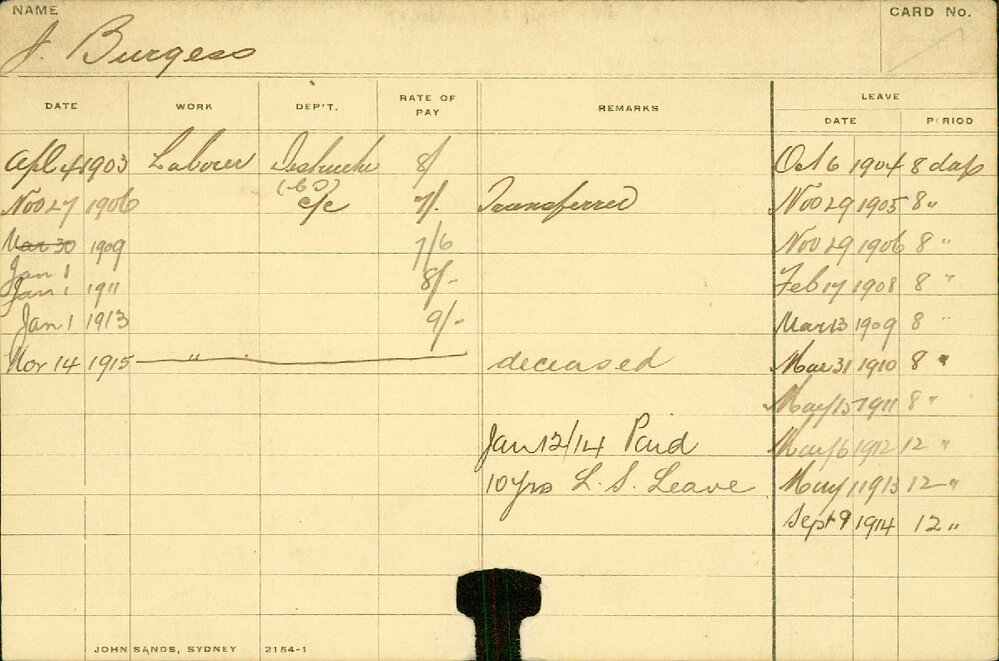 NAME
CARD No.
J. Burgess
DATE WORK DEP'T. RATE OF PAY REMARKS LEAVE
DATE PERIOD
Apl 4 1903 Laborer 8/ Oct 6 1904 8 days
Nov 27 1906 c/c 7/. Transferred Nov 29 1905 8 "
Mar 30 1909 7/6 Nov 29 1906 8 "
Jan 1
Jan 1 1911 8/- Feb 17 1908 8 "
Jan 1 1913 9/- Mar 13 1909 8 "
Nov 14 1915 " deceased Mar 31 1910 8 "
May 15 1911 8 "
Jan 12/14 Paid May 6 1912 12 "
10 yrs L. S. Leave May 1 1913 12 "
Sept 9 1914 12 "
JOHN SANDS, SYDNEY 2154-1